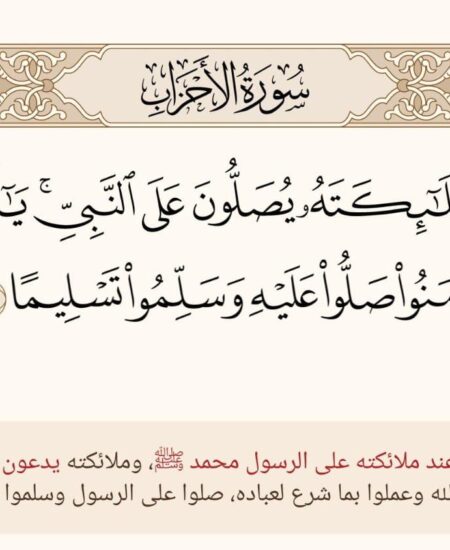 سُورَةُ الأَحْزَابِ
لَٰٓئِكَتَهُۥ يُصَلُّونَ عَلَى ٱلنَّبِيِّۚ يَٰٓأَ
مَنُوا۟ صَلُّوا۟ عَلَيْهِ وَسَلِّمُوا۟ تَسْلِيمًا
عند ملائكته على الرسول محمد ﷺ، وملائكته يدعون
لله وعملوا بما شرع لعباده، صلوا على الرسول وسلموا